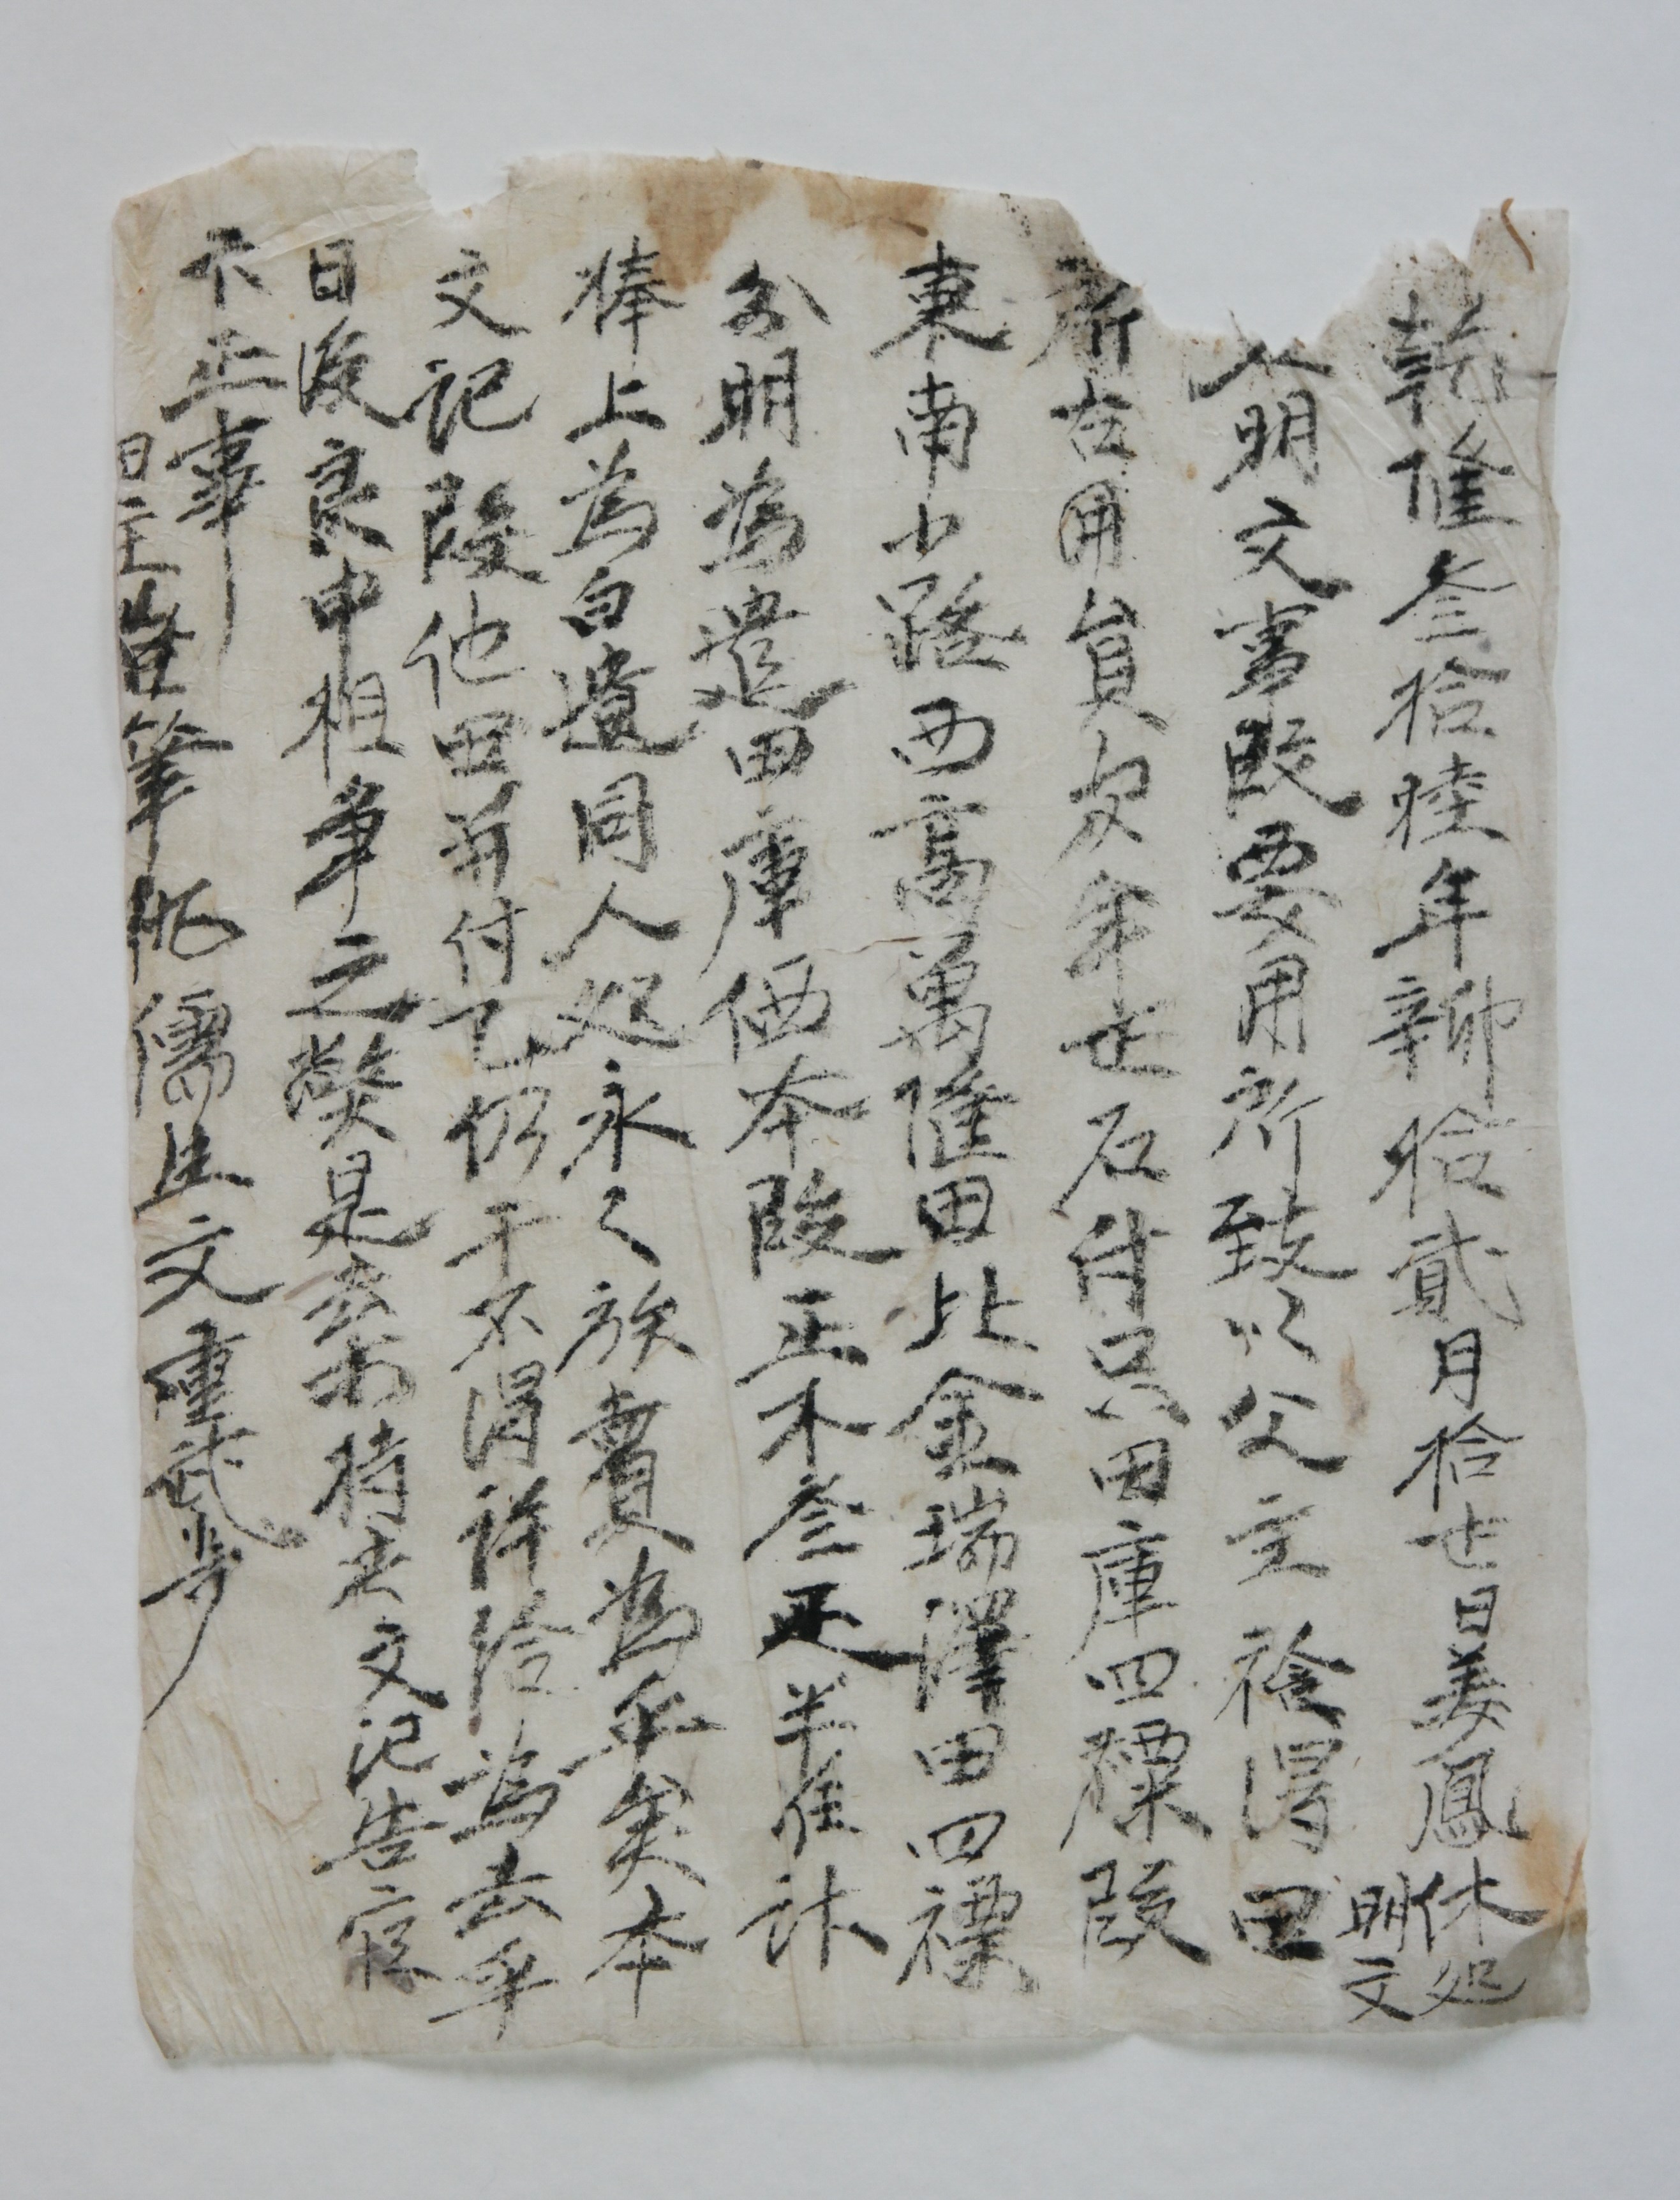 乾隆叁拾陸年辛卯拾貳月拾七日姜鳳休処
明文
明文事段要用所致以父主衿得田
所在用員字年七石付只田庫四標段
東南小路西高萬隆田北金瑞澤田四標
分明為遣田庫価本段正木叁疋半准計
捧上為白遣同人処永〻放賣為乎矣本
文記段他田并付乙仍于不得許給為去乎
日後良中相爭之弊是去等持此文記告官
卞正事
田主自筆 儒生文重武